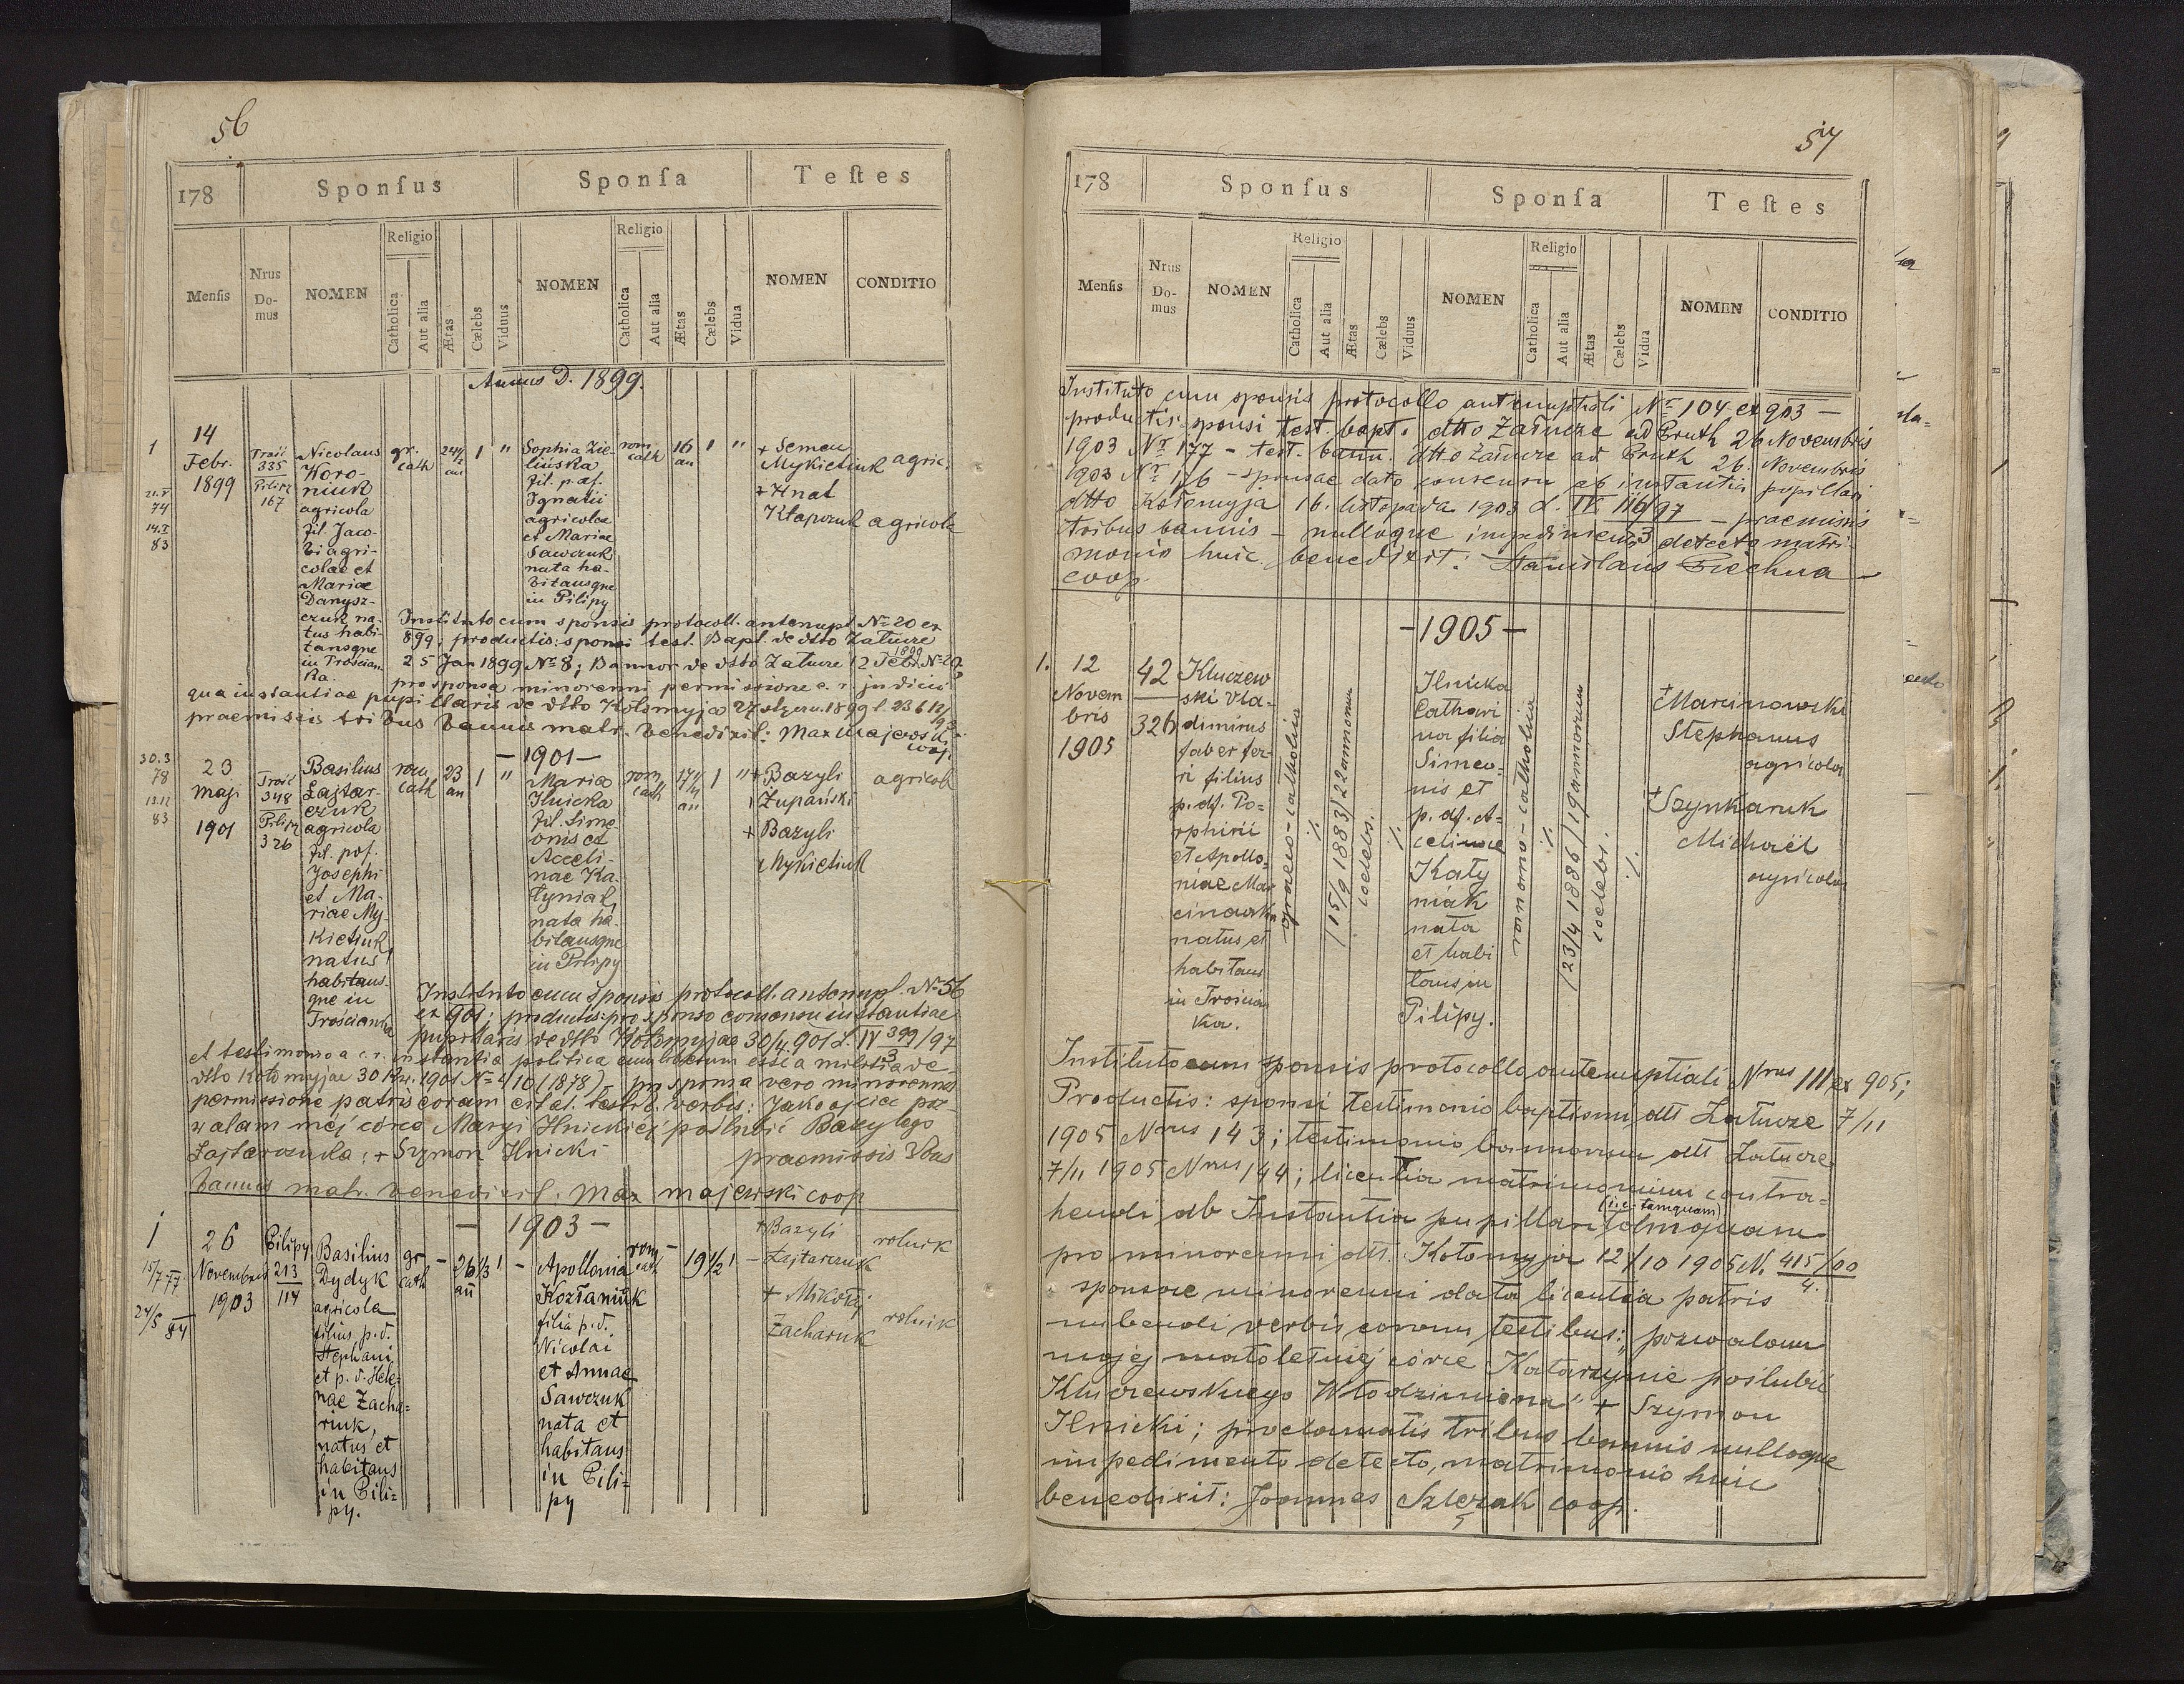 56
178
Sponſus
Sponſa
Teſtes
Menſis
Nrus
Do-
mus
NOMEN
Religio
Catholica
Aut alia
Ætas
Cælebs
Viduus
NOMEN
Religio
Catholica
Aut alia
Ætas
Cælebs
Vidua
NOMEN
CONDITIO
Annus D. 1899.
1
14
Febr.
1899
74
83
335
Pilipy
167
Nicolaus
Woro-
niuk
agricola
fil. Jaco-
bi agri-
colae et
Mariae
Danysz-
czuk na-
tus habi-
tansque
in Trościan
ka.
gr.
cath
24½
an
1
"
Sophia Zie-
lińska
fil. p. def.
Ignatii
agricolae
et Mariae
Sawczuk
nata ha-
bitansque
in Pilipy
rom
cath
16
an
1
"
+ Semen
Mykietiuk agric.
+ Hnat
Kłapczuk agricola
Instituto cum sponsis protocoll. antenupt. № 20 ex
899; productis: sponsi test. Bapt. de dtto Załucze
25 Jan 1899 № 8; Bannor de dtto Załucze 12 Febr. 1899 № 20
pro sponsa minorenni permissione c. r. judicii
qua instantiae pupillaris de dtto Kołomyja 27
praemissis tribus bannis matr. benedixit: Max Majewski
coop.
- 1901 -
30.3
78
83
23
Maji
1901
348
Pilipy
326
Basilius
Łajtar-
czuk
agricola
fil. pos.
Josephi
et Ma-
riae My-
kietiuk
natus
habitans-
que in
Trościanka
rom
cath
23
an
1
"
Maria
Ilnicka
fil. Sime-
onis et
Aceli-
nae Ka-
tyniak,
nata ha-
bitansque
in Pilipy
rom
cath
an
1
"
+ Bazyli
Żupański
agricol
+ Bazyli
Mykietiuk
Instituto cum sponsis protocoll. antenupt. № 56
ex 901; productis: pro sponso consensu instantiae
pupillaris de dtto Kołomyjae 30/4 901 L. IV 399/97
3
et testimonio a c. r. instantia politica eum liberum esse a militia de
dtto Kołomyjae 30 1901 № 410 (1878) - pro sponsa vero minorenni
permissione patris coram citat. testib. verbis: Jako ojciec poz-
walam mej córce Maryi Ilnickiej poślubić Bazylego
Łajtarczuka: + Szymon Ilnicki praemissis 3bus
bannis matr. benedixit. Max Majewski coop
- 1903 -
1
15/7 77
24/5 84
26
Novembris
1903
Pilipy
213
114
Basilius
Dydyk
agricola
filius p. d.
Stephani
et p. d. Hele-
nae Zacha=
riuk,
natus et
habitans
in Pili=
py.
gr
cath
-
26 1/3
an
1
-
Apollonia
Kozłaniuk
filia p. d.
Nicolai
et Annae
Sawczuk
nata et
habitans
in Pili=
py
rom
cath
-
19 1/2
1
-
+ Bazyli
Łajtarczuk
rolnik
+ Mikołaj
Zacharuk
rolnik
57
178
Sponſus
Sponſa
Teſtes
Menſis
Nrus
Do-
mus
NOMEN
Religio
Catholica
Aut alia
Ætas
Cælebs
Viduus
NOMEN
Religio
Catholica
Aut alia
Ætas
Cælebs
Vidua
NOMEN
CONDITIO
Instituto cum sponsis protocollo antenuptiali Nr 104 ex 903 -
productis: sponsi test. bapt. dtto Załucze ad Pruth 26 Novembris
1903 Nr 177 - test. bann. dtto Załucze ad Pruth 26. Novembris
1903 Nr 176 - sponsae dato consensu ab instantia pupillari
dtto Kołomyja 16. listopada 1903 L. IV 116/97 - praemissis
3
tribus bannis - nulloque impedimento detecto matri-
monio huic benedixit: Stanislaus Piechna -
coop.
- 1905 -
1.
12
Novem
bris
1905
42
326
Kluczew
ski Vla-
dimirus
faber fer-
ri filius
p. df. Po=
rphirii
et Apollo-
niae Mar
cinowska
natus et
habitans
in Trościan
ka.
graeco-catholica
·/.
/15/9 1883/ 22 annorum
coelebs.
·/.
Ilnicka
Cathari
na filia
Simeo-
nis et
p. df. A-
celinae
Katy
niak
nata
et habi
tans in
Pilipy.
romano-catholica
·/.
/23/4 1886/ 19 annorum
coelebs.
·/.
+ Marcinowski
Stephanus
agricola
+ Szynkaruk
Michaël
agricola
Instituto cum sponsis protocollo antenuptiali Nrus 111 ex 905;
Productis: sponsi testimonio baptismi dtt Załucze 7/11
1905 Nrus 143; testimonio bannorum dtt Załucze
7/11 1905 Nrus 144; licentia matrimonium contra=
hendi ab Instantia pupillari (i.e. tamquam)
pro minorenni dtt. Kołomyja 12/10 1905 N. 415/00
4.
sponsae minorenni data licentia patris
nubendi verbis coram testibus: „pozwalam
mojej małoletniej córce Katarzynie poślubić
Kluczewskiego Włodzimierza" + Szymon
Ilnicki; proclamatis tribus bannis nulloque
impedimento detecto, matrimonio huic
benedixit: Joannes Szlęzak coop.